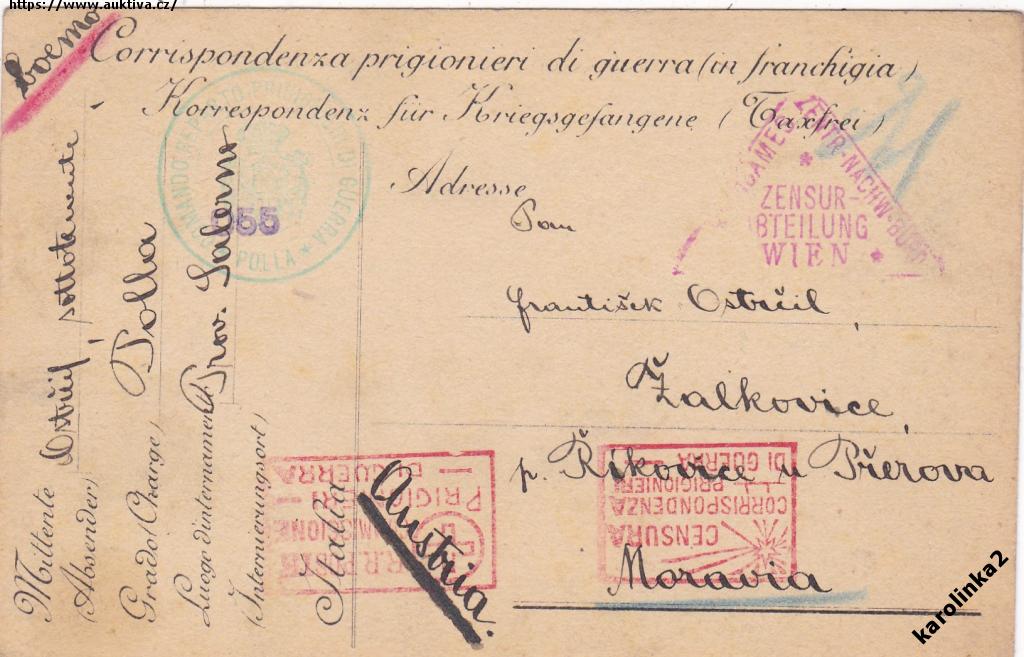 https://www.auktiva.cz/
boemo
Corrispondenza prigionieri di guerra (in franchigia)
Korrespondenz für Kriegsgefangene (Taxfrei)
COMANDO REPARTO PRIGIONIERI DI GUERRA
* POLLA *
655
ZENTR-NACHW-BURO
ZENSUR-
ABTEILUNG
WIEN
Adresse
Pan
František Ostrčil
Žalkovice
p. Říkovice u Přerova
Moravia
Austria.
Mittente Ostřil, sottotenente
(Absender)
Grado (Charge) Polla
Luogo d'internamento Prov. Salerno
(Internierungsort)
Italia
CENSURA
CORRISPONDENZA
PRIGIONIERI
DI GUERRA
R.R. POSTE
COMMISSIONE
PRIGIONI
DI GUERRA
karolinka2